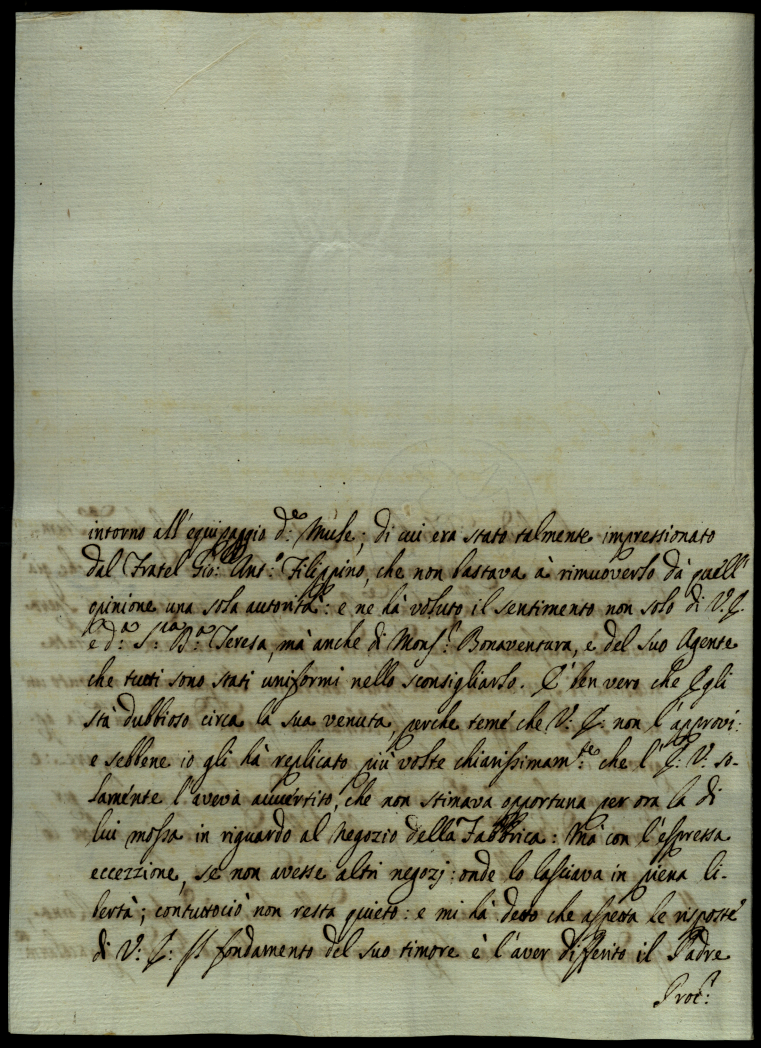 intorno all'equipaggio d.e Mule; di cui era stato talmente impressionato
dal Fratel Gio: Ant.o Filippino, che non bastava à rimuoverlo da quell'
opinione una sola autorità: e ne hà voluto il sentimento non solo di V. E.
e d.a S.ra D.a Teresa, mà anche di Mons.r Bonaventura, e del suo Agente
che tutti sono stati uniformi nello sconsigliarlo. E' ben vero che Egli
stà dubbioso circa la sua venuta, perche teme che V: E: non l'approvi:
e sebbene io gli hà replicato più volte chiarissimam.te che l'E: V: so-
lamente l'aveva avvertito, che non stimava opportuna per ora la di
lui mossa in riguardo al negozio della Fabbrica: Mà con l'espressa
eccezzione, se non avesse altri negozj: onde lo lasciava in piena li-
bertà; contuttociò non resta quieto: e mi hà detto che aspetta le risposte
di V: E: Il fondamento del suo timore è l'aver differito il Padre
Proc.r